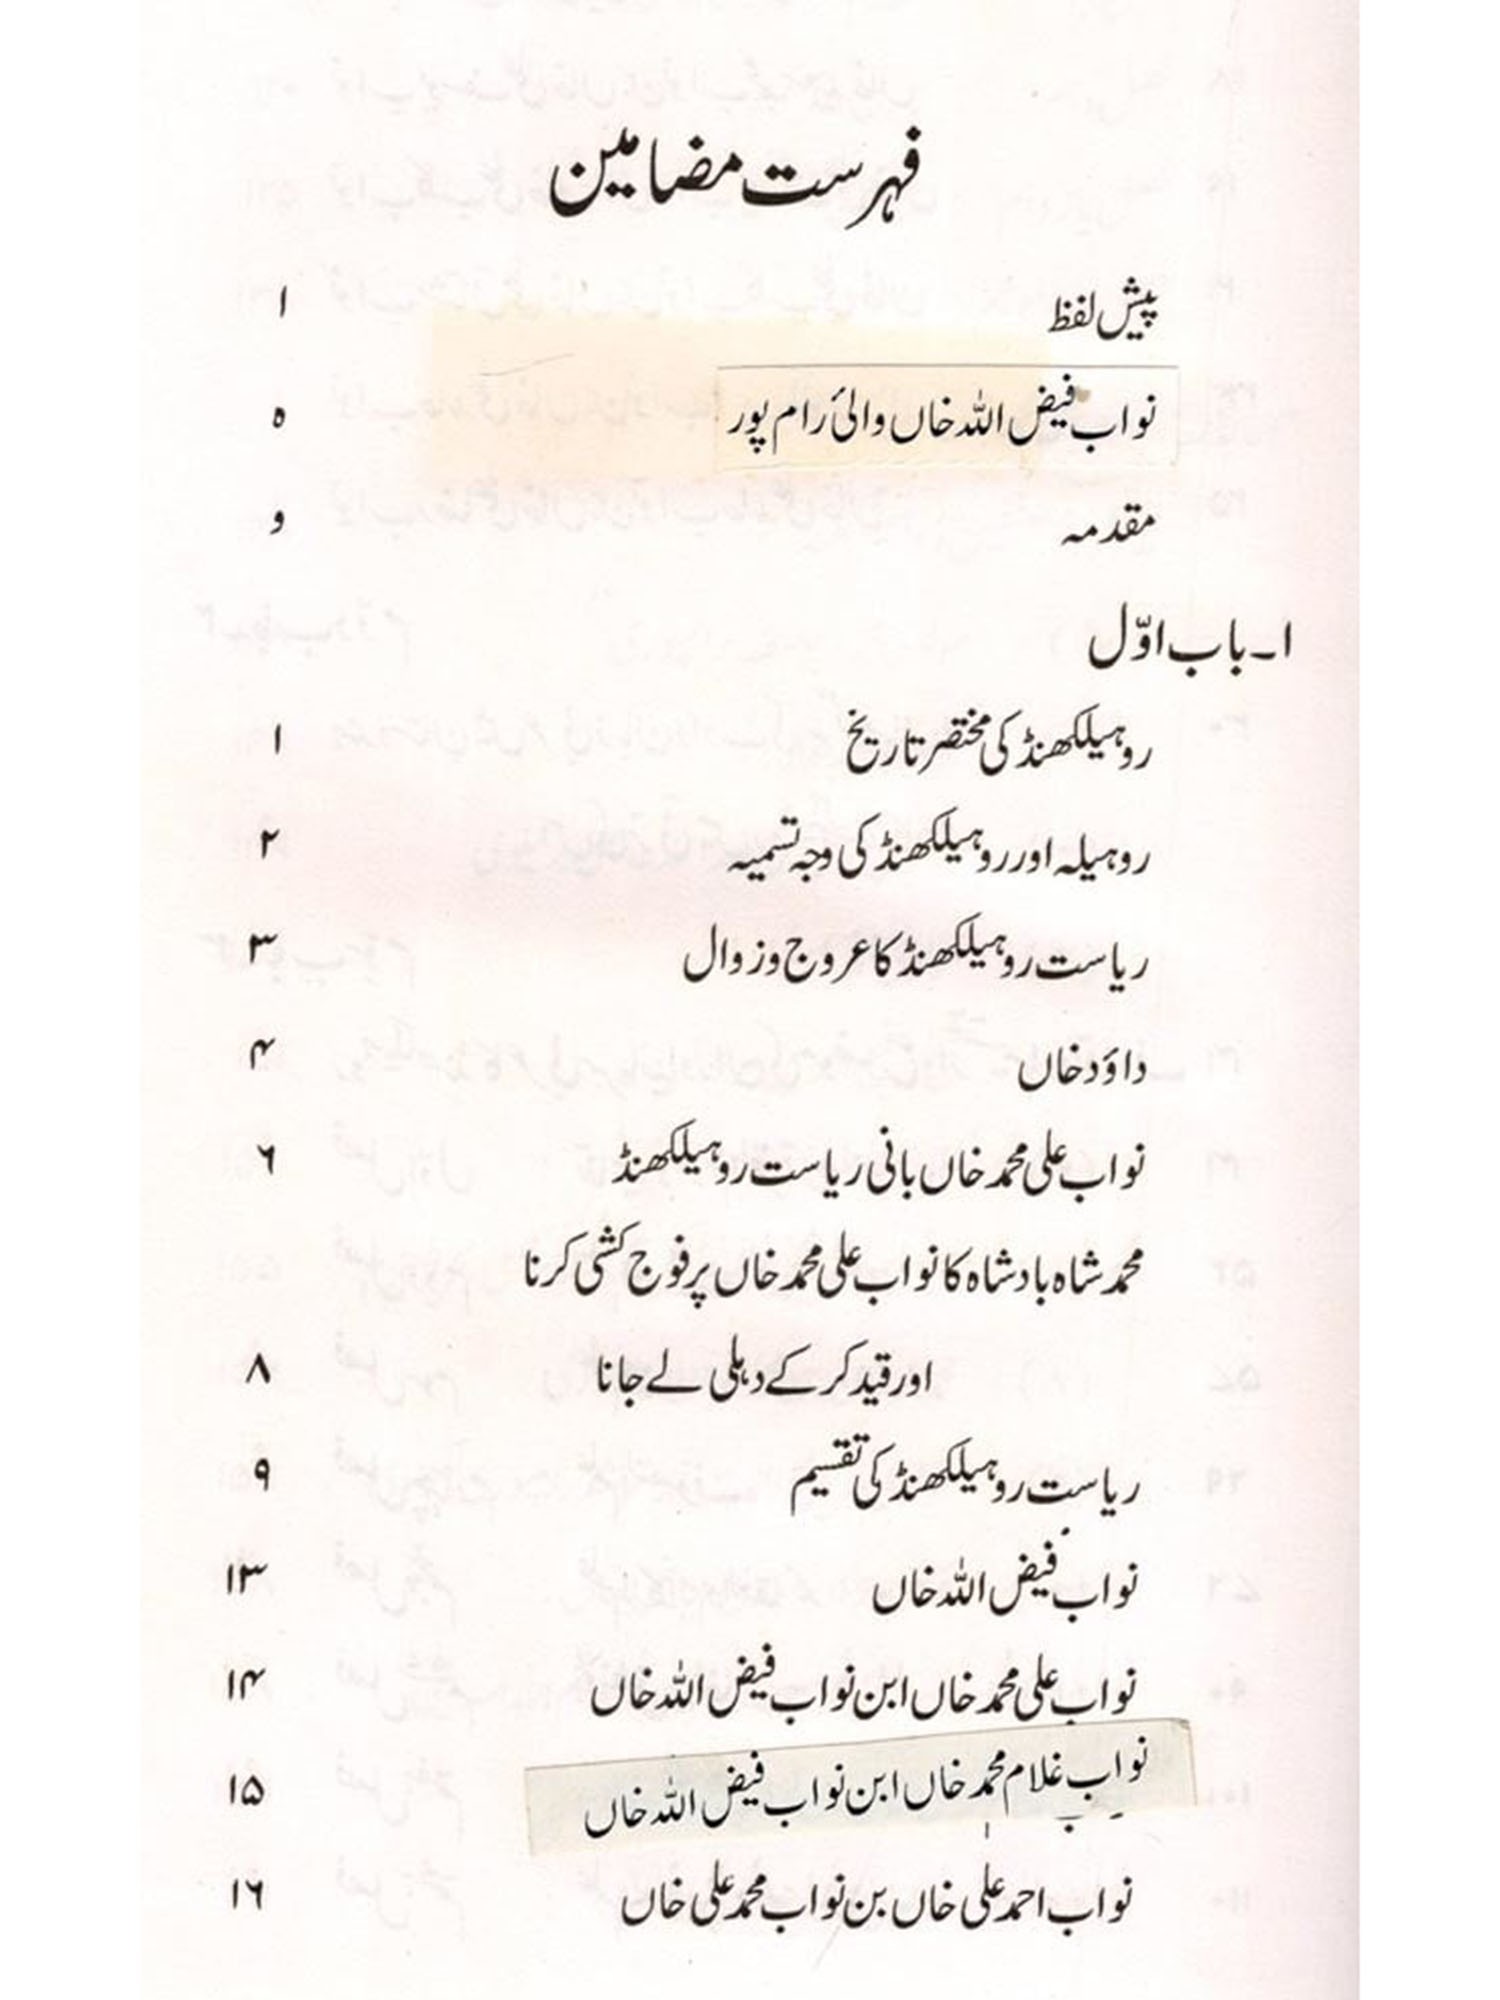 فہرست مضامین
پیش لفظ ا
نواب فیض اللہ خاں والیٔ رام پور ہ
مقدمہ و
۱۔ باب اوّل
روہیلکھنڈ کی مختصر تاریخ ۱
روہیلہ اور روہیلکھنڈ کی وجہ تسمیہ ۲
ریاست روہیلکھنڈ کا عروج و زوال ۳
داؤد خاں ۴
نواب علی محمد خاں بانی ریاست روہیلکھنڈ ۶
محمد شاہ بادشاہ کا نواب علی محمد خاں پر فوج کشی کرنا
اور قید کر کے دہلی لے جانا ۸
ریاست روہیلکھنڈ کی تقسیم ۹
نواب فیض اللہ خاں ۱۳
نواب علی محمد خاں ابن نواب فیض اللہ خاں ۱۴
نواب غلام محمد خاں ابن نواب فیض اللہ خاں ۱۵
نواب احمد علی خاں بن نواب محمد علی خاں ۱۶